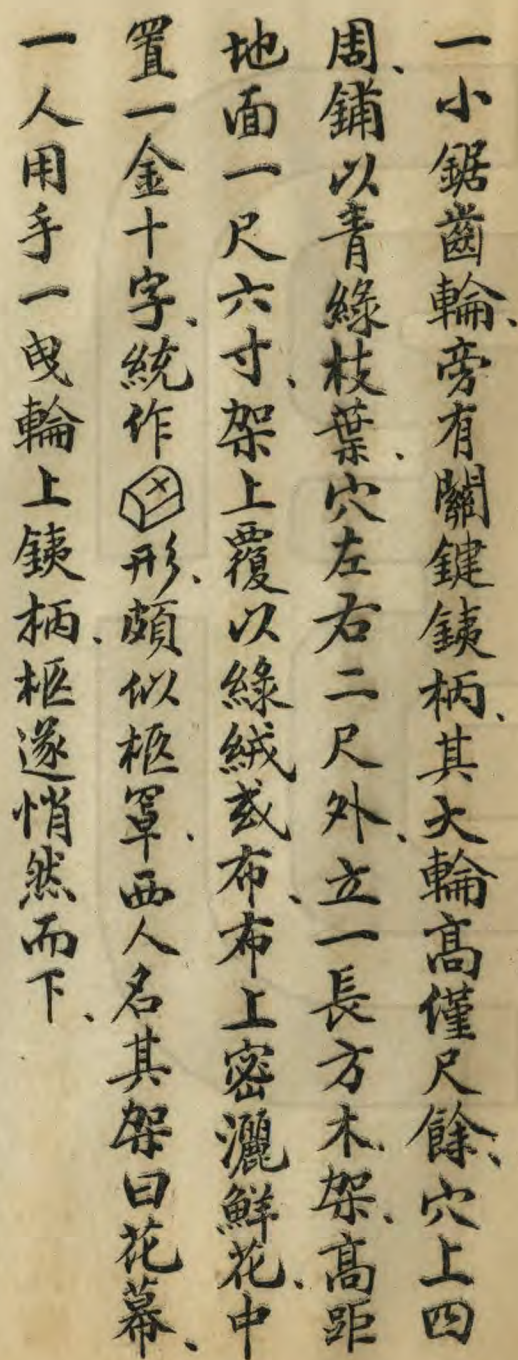 一小鋸齒輪、旁有關鍵銕柄、其大輪高僅尺餘、穴上四
周、鋪以青綠枝葉、穴左右二尺外、立一長方木架、高距
地面一尺六寸、架上覆以綠絨或布、布上密灑鮮花、中
置一金十字、統作形、頗似柩罩、西人名其架曰花幕、
一人用手一曳輪上銕柄、柩遂悄然而下、